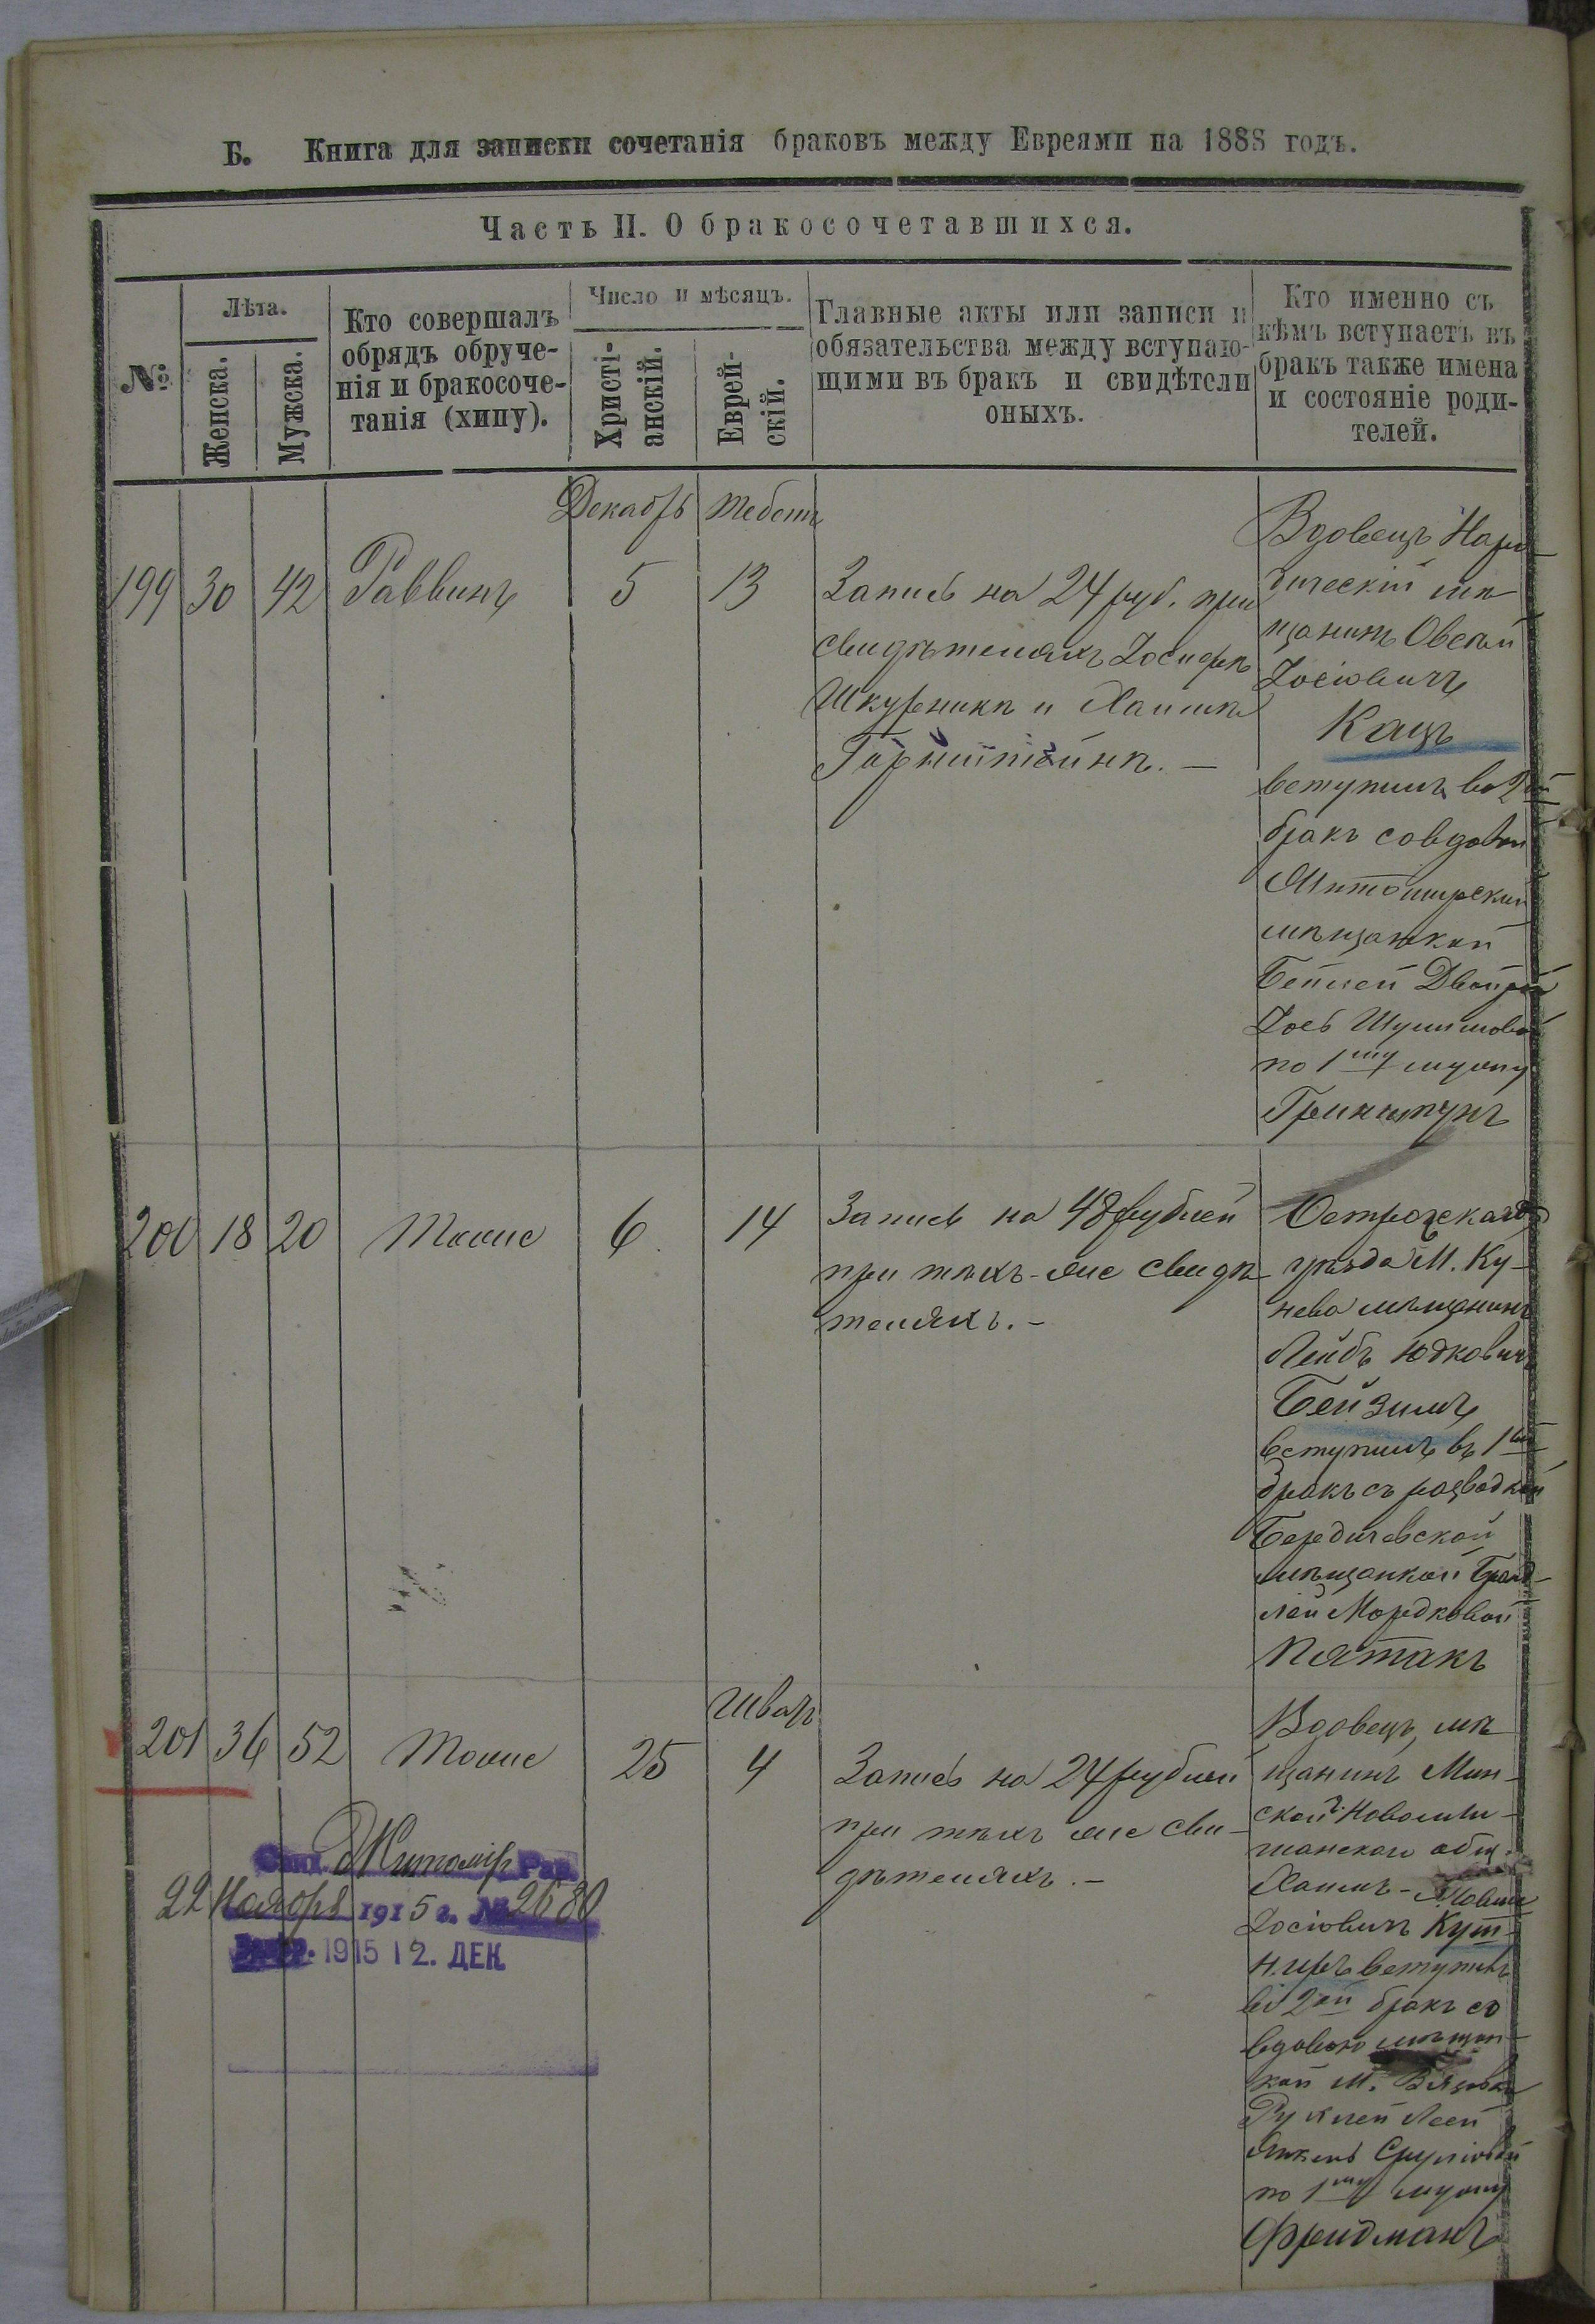 Б. Книга для записки сочетанія браковъ между Евреями на 1888 годъ.
Часть II. О бракосочетавшихся.
№
Лѣта.
Женска.
Мужска.
Кто совершалъ
обрядъ обруче-
нія и бракосоче-
танія (хипу).
Число и мѣсяцъ.
Христі-
анскій.
Еврей-
скій.
Главные акты или записи и
обязательства между вступаю-
щими въ бракъ и свидѣтели
оныхъ.
Кто именно съ
кѣмъ вступаетъ въ
бракъ также имена
и состояніе роди-
телей.
Декабрь Тебетъ
199 30 42 Раввинъ 5 13
Запись на 24 руб. при
свидѣтеляхъ Іосифѣ
Шкурникѣ и Хаимѣ
Горнштейнѣ. —
Вдовецъ Наро-
дическій мѣ-
щанинъ Овсей
Іосіовичъ
Кацъ
вступилъ во 2ой
бракъ со вдовой
Житомирской
мѣщанкой
Бейлей Двойрой
Іось Шулимовой
по 1му мужу
Гринштупъ
200 18 20 Тоже 6 14
Запись на 48 рублей
при тѣхъ-же свидѣ-
теляхъ. —
Острожскаго
уѣзда М. Ку-
нева мѣщанинъ
Лейбъ Юдковичъ
Бейзимъ
вступилъ въ 1ый
бракъ съ разводкой
Бердичевской
мѣщанкой Бранд-
лей Мордковой
Пятакъ
Шватъ
201 36 52 Тоже 25 4
Запись на 24 рублей
при тѣхъ же сви-
дѣтеляхъ. —
Вдовецъ, мѣ-
щанинъ Мин-
ской г.
общ.
Хаимъ-Мовша
Іосіовичъ Кут-
ниръ вступилъ
во 2ой бракъ съ
вдовою мѣщан-
кой М.
Рухлей Леей
Янкель Сруліовой
по 1му мужу
Фридманъ
Житомір Рав.
22 Ноября 1915 г. № 2680
1915 12. ДЕК